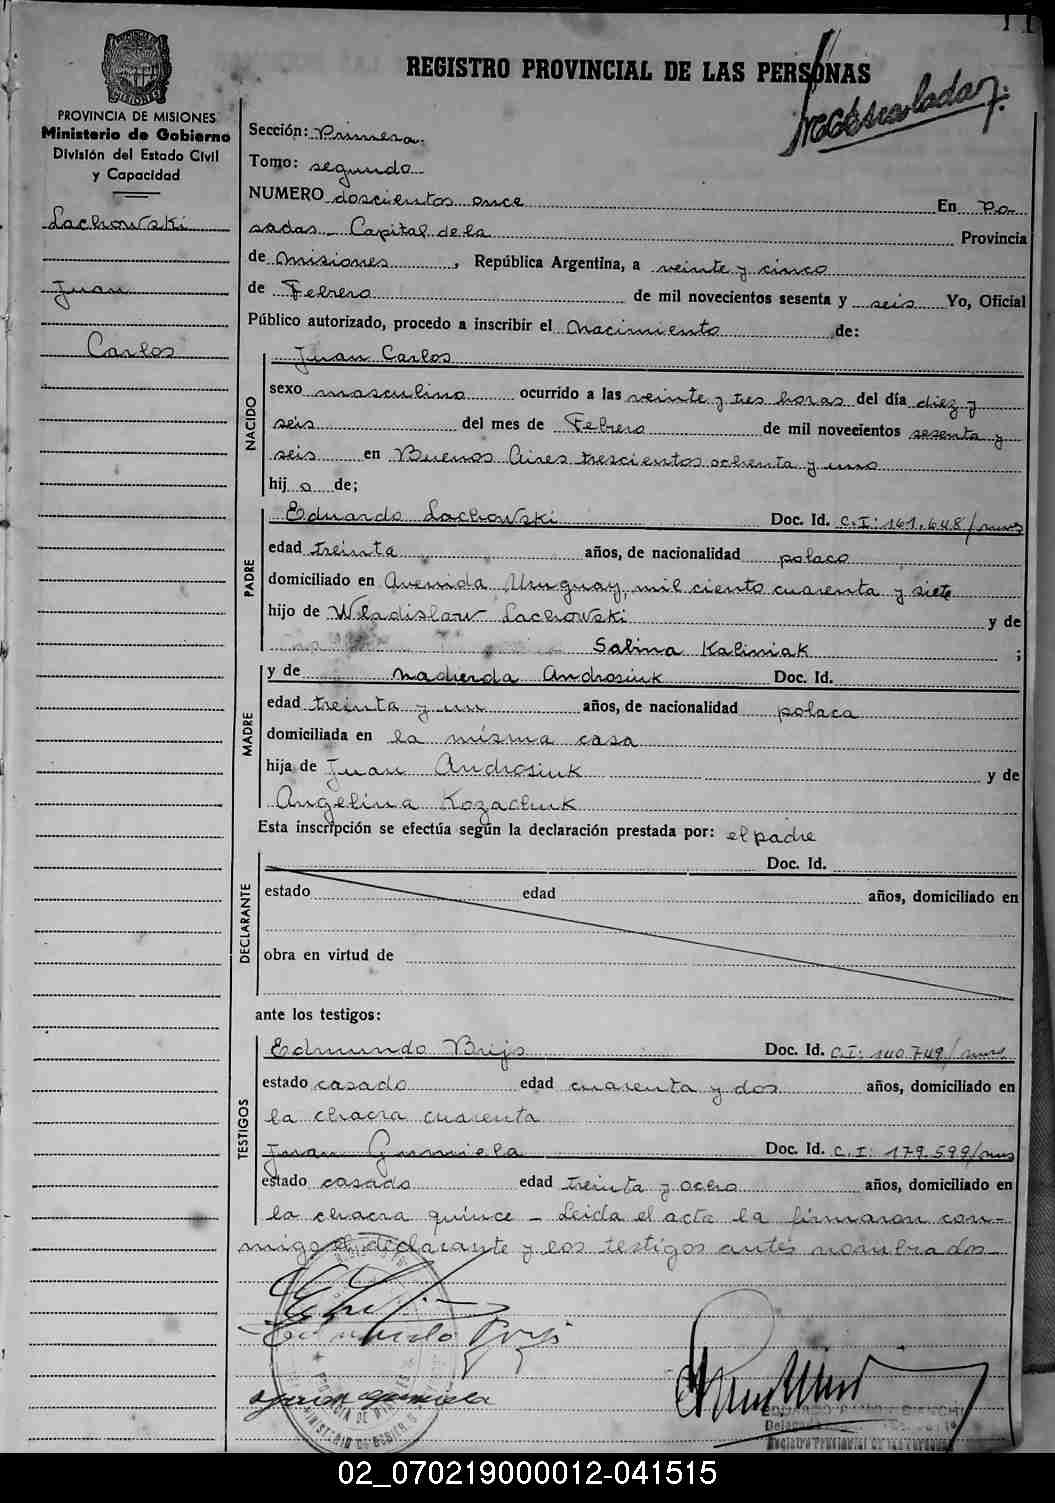 REGISTRO PROVINCIAL DE LAS PERSONAS
PROVINCIA DE MISIONES
Ministerio de Gobierno
División del Estado Civil
y Capacidad
Lachowski
Juan
Carlos
Sección: Primera.
Tomo: segundo
NUMERO doscientos once En Po-
sadas - Capital de la Provincia
de Misiones, República Argentina, a veinte y cinco
de Febrero de mil novecientos sesenta y seis Yo, Oficial
Público autorizado, procedo a inscribir el Nacimiento de:
NACIDO
Juan Carlos
sexo masculino ocurrido a las veinte y tres horas del día diez y
seis del mes de Febrero de mil novecientos sesenta y
seis en Buenos Aires trescientos ochenta y uno
hijo de;
PADRE
Eduardo Lachowski Doc. Id. C.I: 161.648/mnes
edad treinta años, de nacionalidad polaco
domiciliado en Avenida Uruguay, mil ciento cuarenta y siete
hijo de Wladislaw Lachowski y de
Sabina Kaliniak ;
MADRE
y de Nadierda Androsiuk Doc. Id.
edad treinta y un años, de nacionalidad polaca
domiciliada en la misma casa
hija de Juan Androsiuk y de
Angelina Kozachuk
Esta inscripción se efectúa según la declaración prestada por: el padre
DECLARANTE
Doc. Id.
estado edad años, domiciliado en
obra en virtud de
ante los testigos:
TESTIGOS
Edmundo Doc. Id. C.I: 140.749/mnes
estado casado edad cuarenta y dos años, domiciliado en
la chacra cuarenta
Juan Gumiela Doc. Id. C.I: 179.599/mnes
estado casado edad treinta y ocho años, domiciliado en
la chacra quince - Leida el acta la firmaron con-
migo el declarante y los testigos antes nombrados
02_070219000012-041515